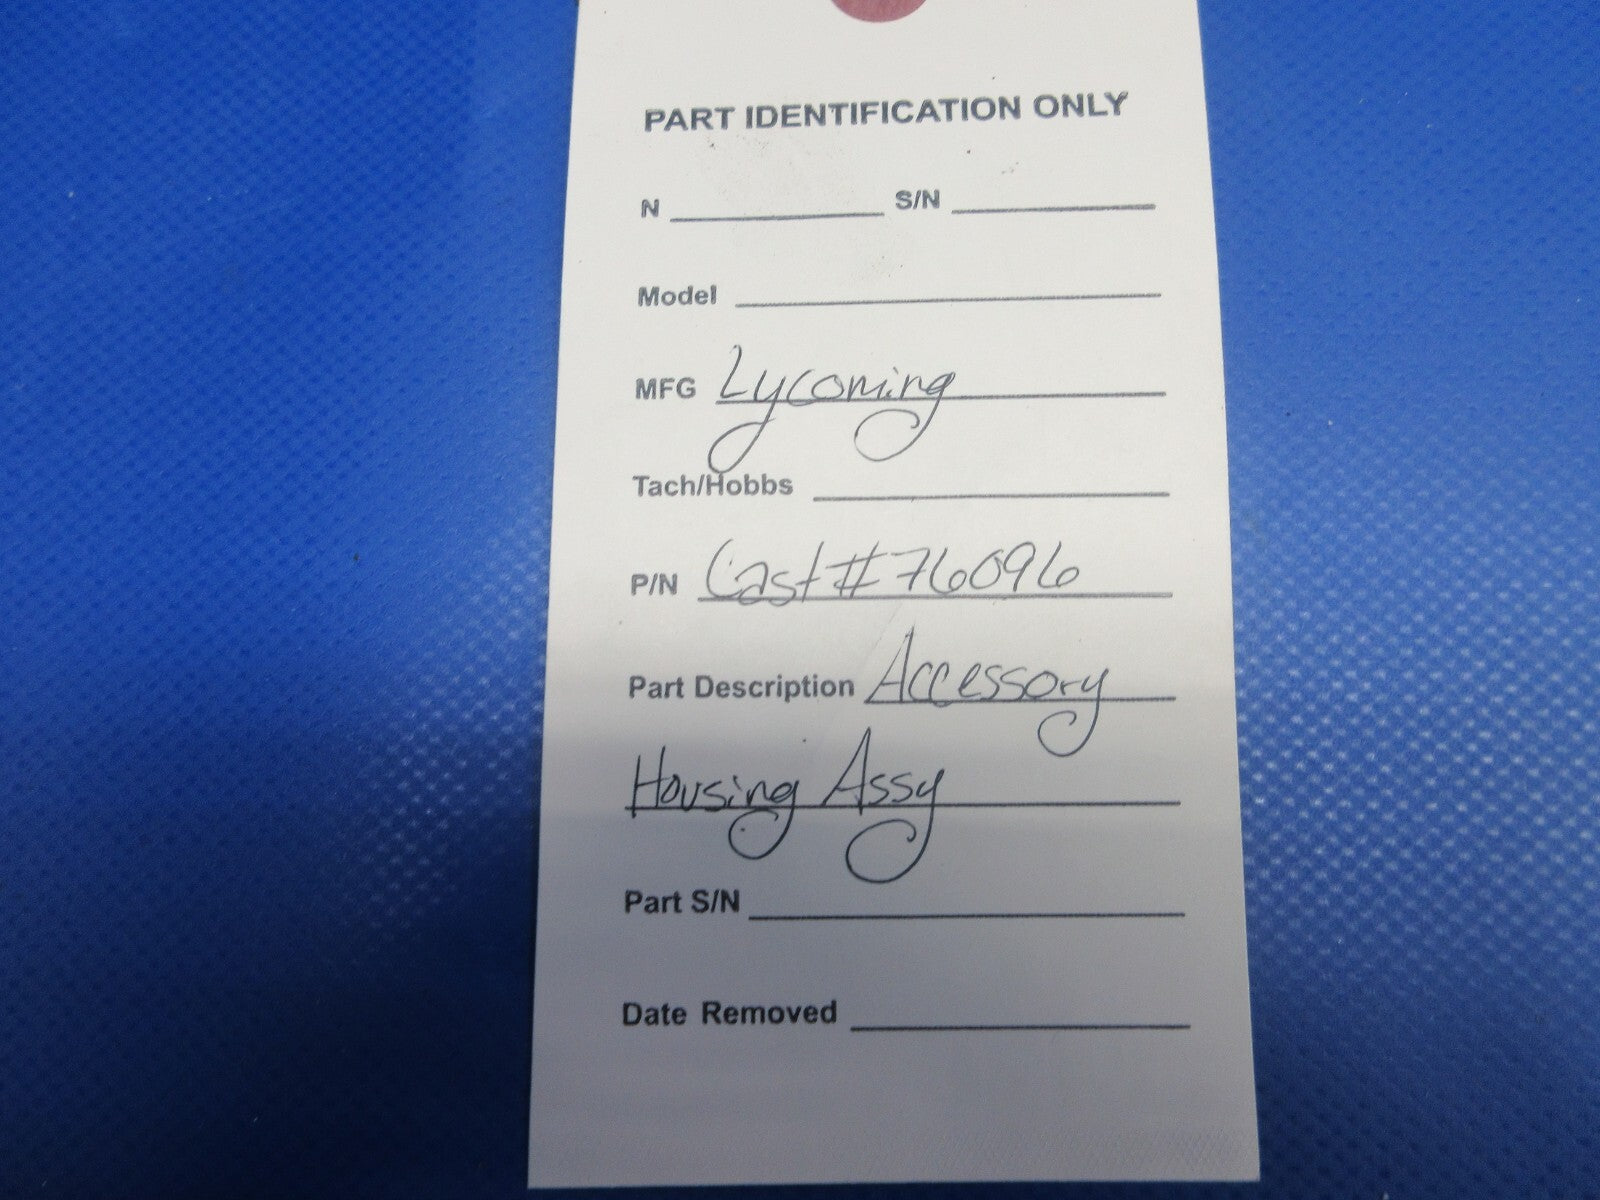 PART IDENTIFICATION ONLY
N S/N
Model
MFG Lycoming
Tach/Hobbs
P/N Cast# 76096
Part Description Accessory
Housing Assy
Part S/N
Date Removed